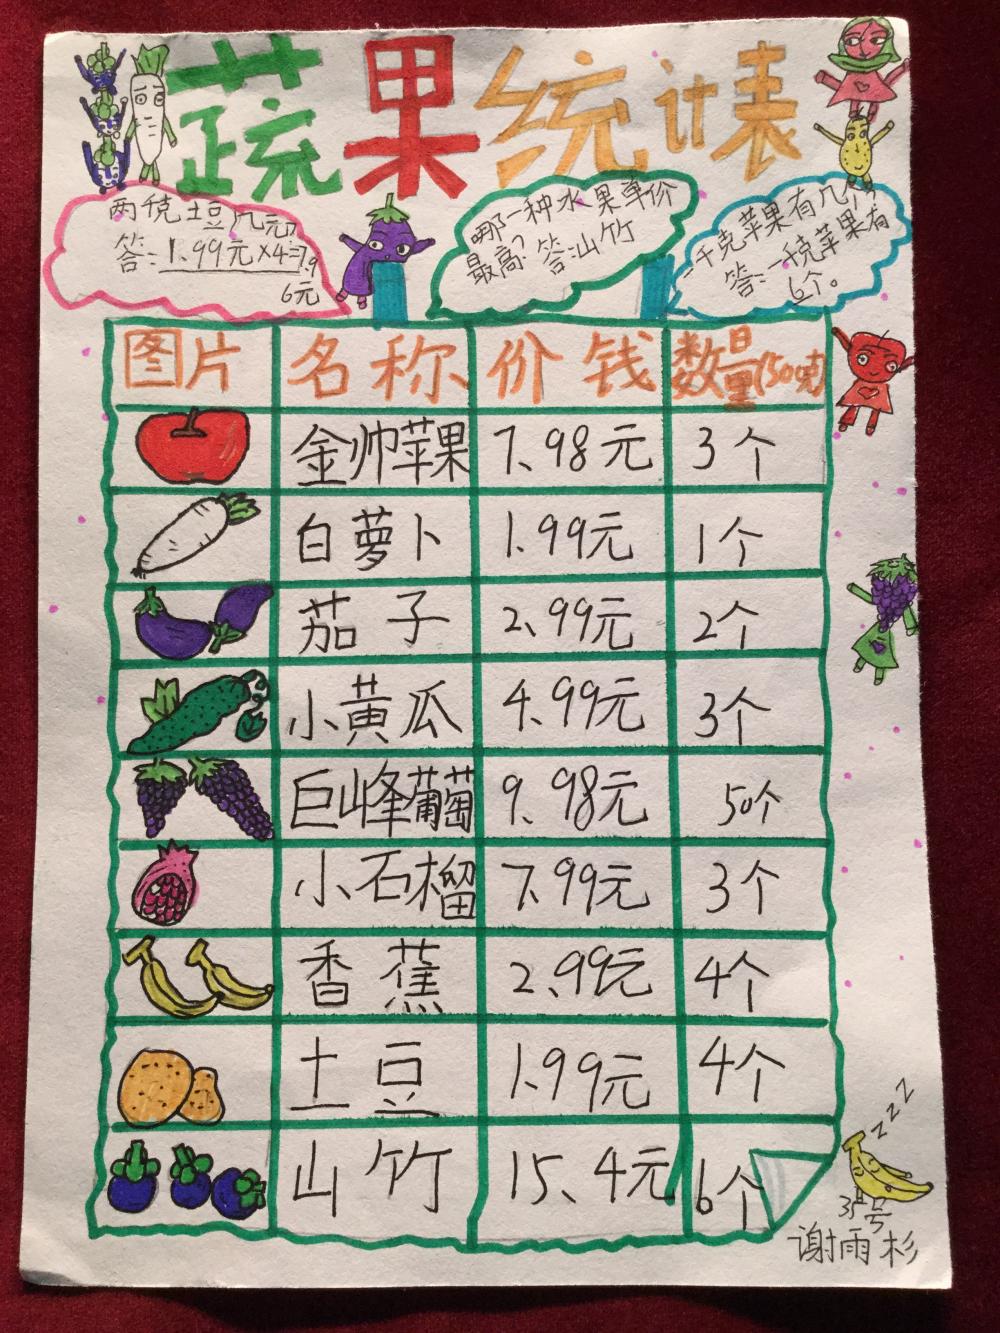 蔬果统计表
两千克土豆几元?
答:1.99元×4=7.9
6元
哪一种水果单价
最高? 答:山竹
一千克苹果有几个
答:一千克苹果有
6个。
图片 名称 价钱 数量(500克)
金帅苹果 7.98元 3个
白萝卜 1.99元 1个
茄子 2.99元 2个
小黄瓜 4.99元 3个
巨峰葡萄 9.98元 50个
小石榴 7.99元 3个
香蕉 2.99元 4个
土豆 1.99元 4个
山竹 15.4元 6个
zzz
35号
谢雨杉